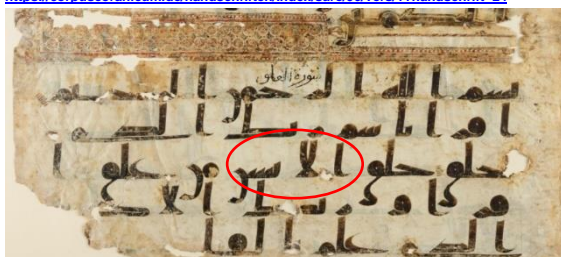 سورة العلق
بسم الله الرحمن الرحيم
اقرا باسم ربك الذى
خلق خلق الانسن من علق ا
قرا وربك الاكرم
الذى علم بالقلم